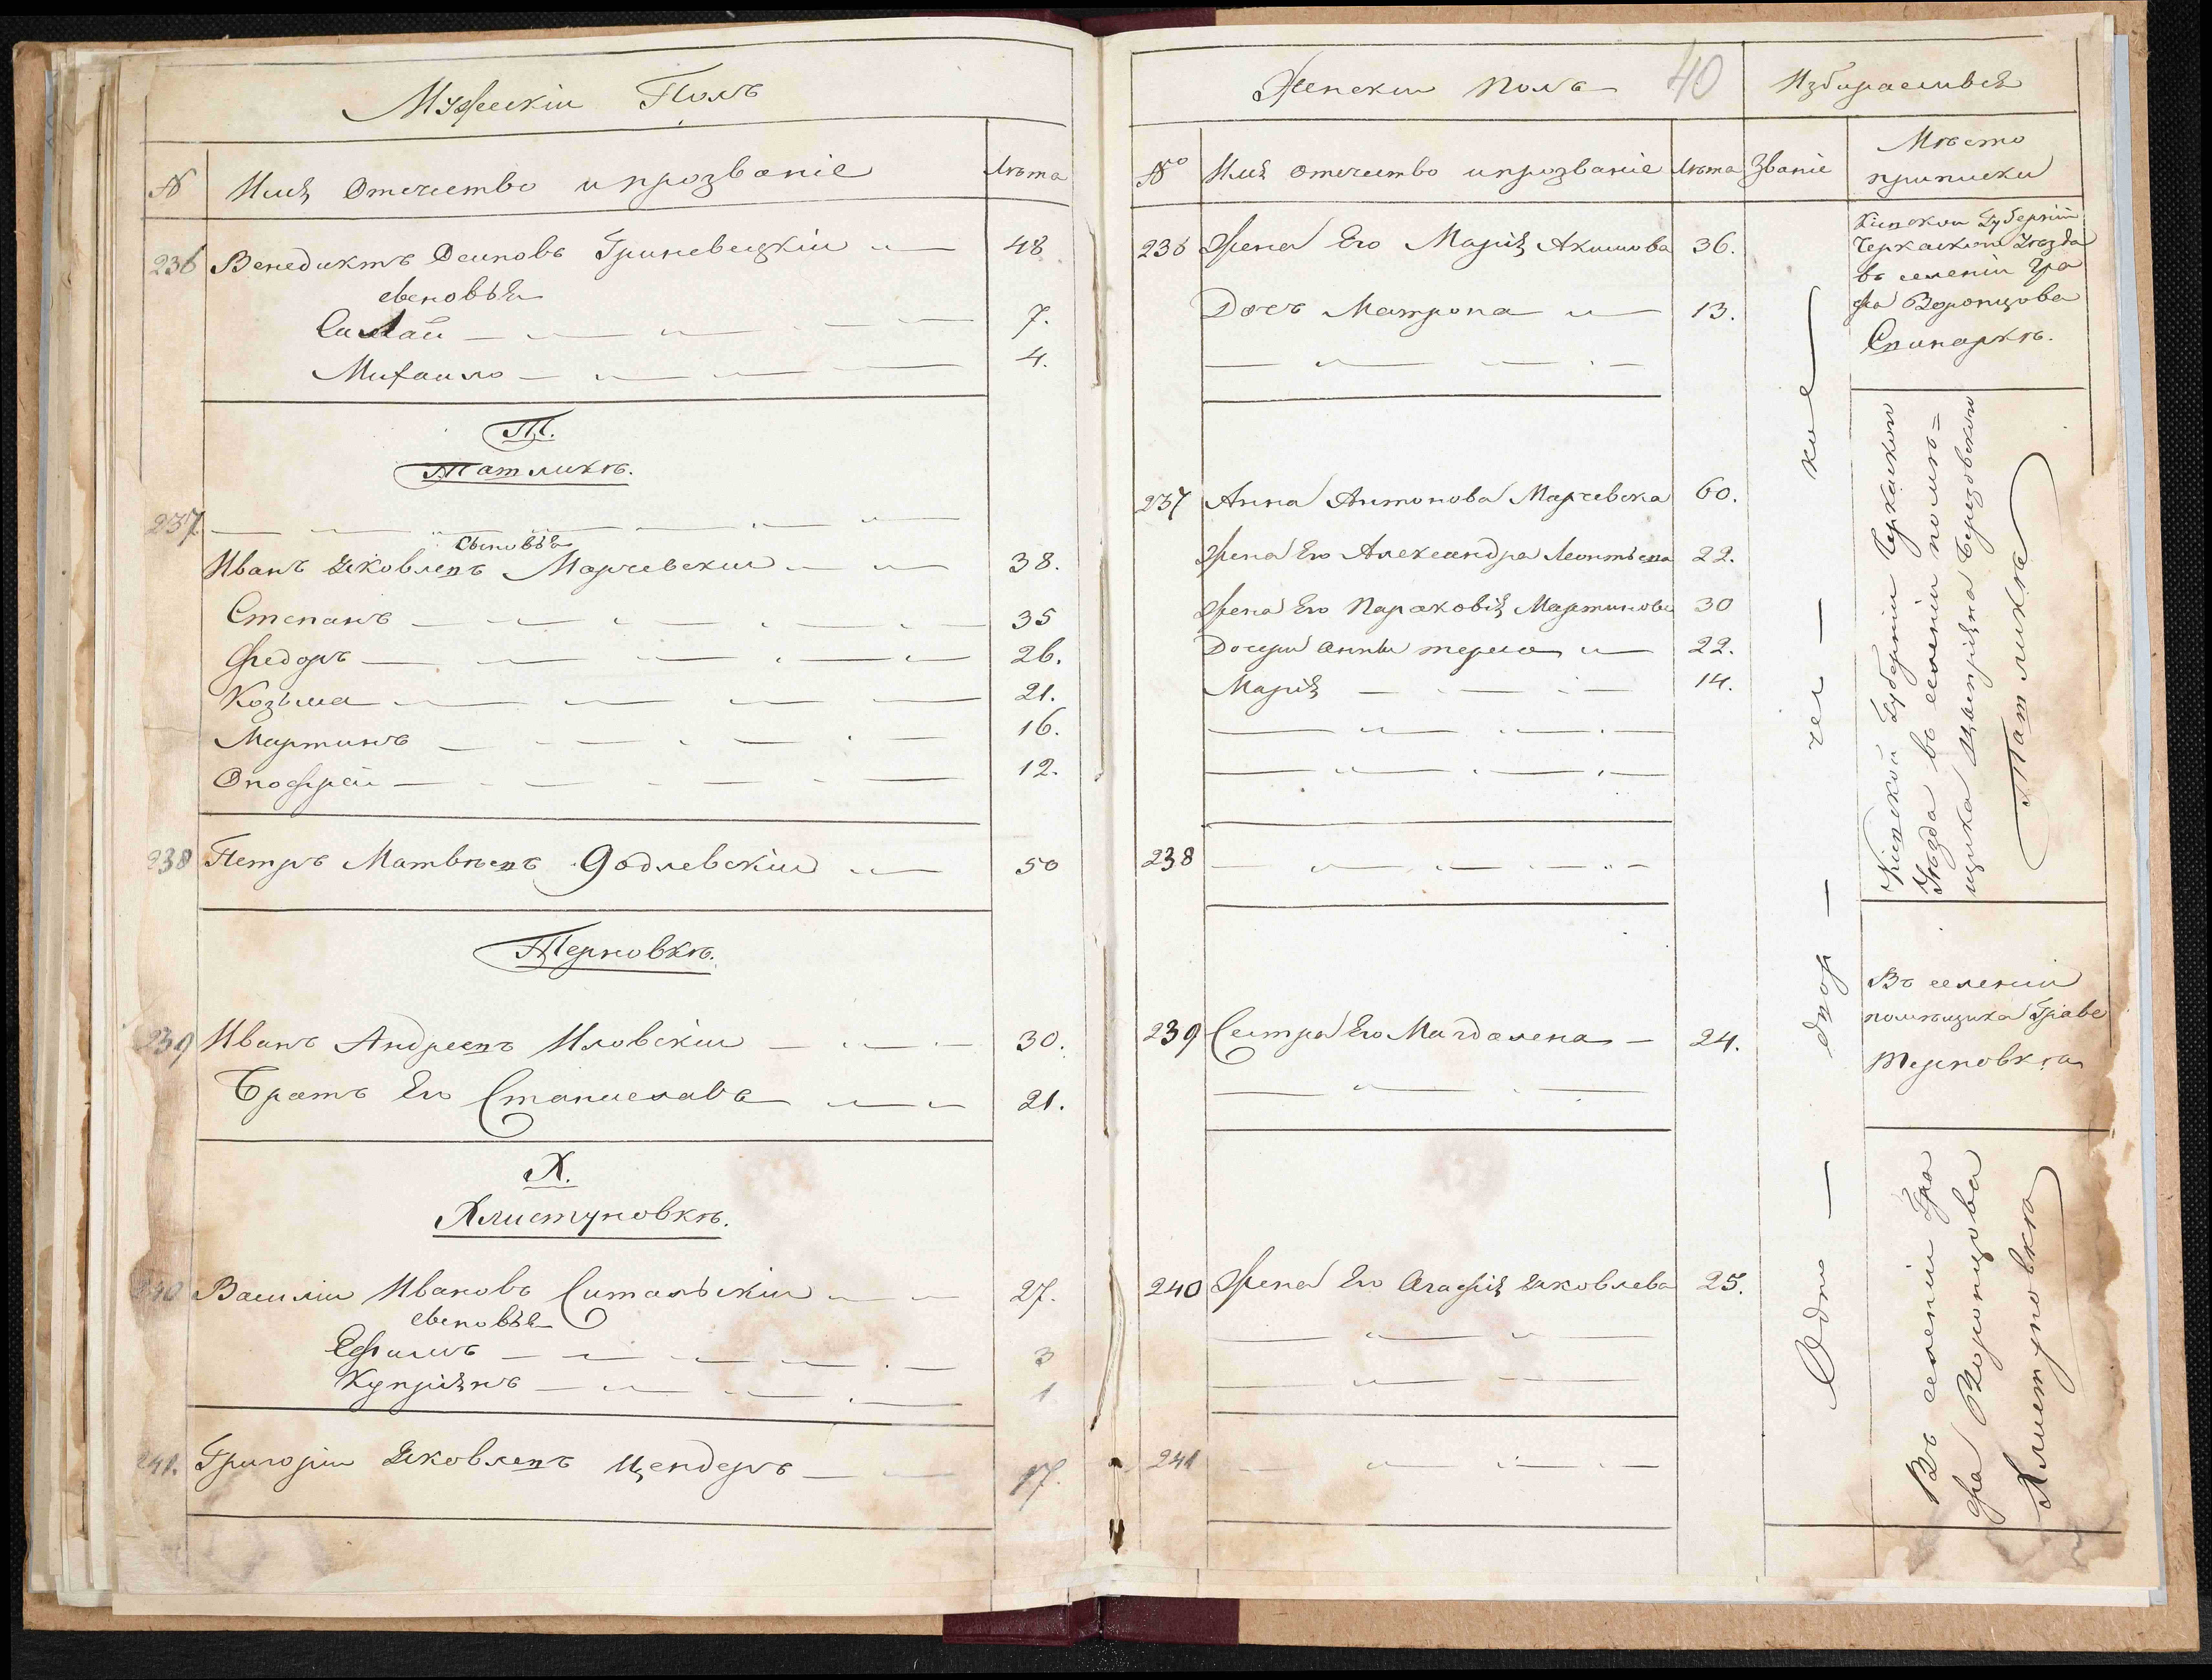 Мужескiй Полъ
N
Имя Отечество и прозванiе
Лѣта
236 Венедиктъ Осиповъ Гриневецкiй 48
сыновья
7.
Михайло 4.
Т.
Татликѣ.
237.
сыновья
Иванъ Яковлевъ Марчевскiй 38.
Степанъ 35
Федоръ 26.
Козьма 21.
Мартинъ 16.
Онофрей 12.
238 Петръ Матвѣевъ Годлевскiй 50
Терновкѣ.
239 Иванъ Андреевъ Иловскiй 30.
Братъ Его Станиславъ 21.
Х.
Хлистуновкѣ.
240 Василiй Ивановъ Ситальскiй 27.
сыновья
Ефимъ 3
Купрiянъ 1
241. Григорiй Яковлевъ Цендеръ 17.
Женскiй полъ
40
Избираемыя
№
Имя отечество и прозванiе
Лѣта
Званiе
Мѣсто
приписки
236 Жена Его Марiя Акимова 36.
Дочь Матрона 13.
237 Анна Антонова Марчевска 60.
Жена Его Александра Леонтьева 22.
Жена Его Параковiя Мартинова 30
Дочери Анны 22.
Марiя 14.
238
239 Сестра Его Магдалена 24.
240 Жена Его Агафiя Яковлева 25.
241
Одно — двор — чес — кое
Кiевской Губернiи
Черкаскаго Уѣзда
въ селенiи Гра
фа Воронцова
Кiевской Губернiи Черкаскаго
Уѣзда въ селенiи помѣ=
щика
Татликѣ
Въ селенiи
помѣщика Граве
Терновкѣ
Въ селенiи Гра
фа Воронцова
Хлистуновкѣ